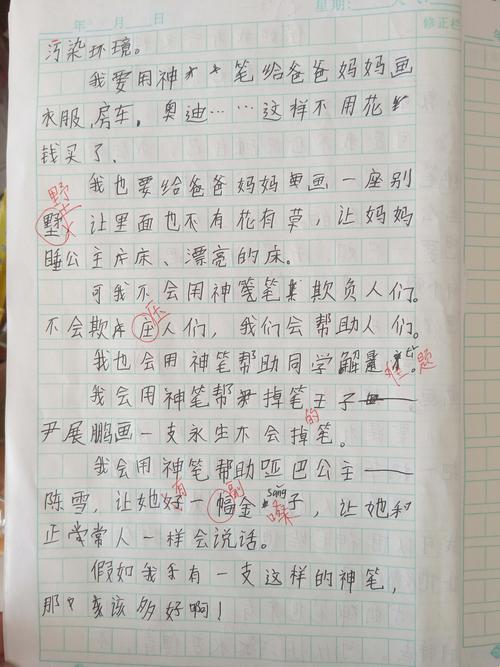 年 月 日 星期:
修正栏
污染环境。
我要用神笔给爸爸妈妈画
衣服、房车,奥迪……这样不用花
钱买了、
野
我也要给爸爸妈妈画一座别
墅 让里面也不有花有草,让妈妈
睡公主床、漂亮的床。
可我不会用神笔欺负人们。
压
不会欺庄人们,我们会帮助人们。
我也会用神笔帮助同学解 难题
我会用神笔帮掉笔王子——
的
尹展鹏画一支永生不会掉笔。
我会用神笔帮助哑巴公主——
有 副 sǎng
陈雪,让她好一幅金嗓子,让她和
正常人一样会说话。
假如我有一支这样的神笔,
那该多好啊!